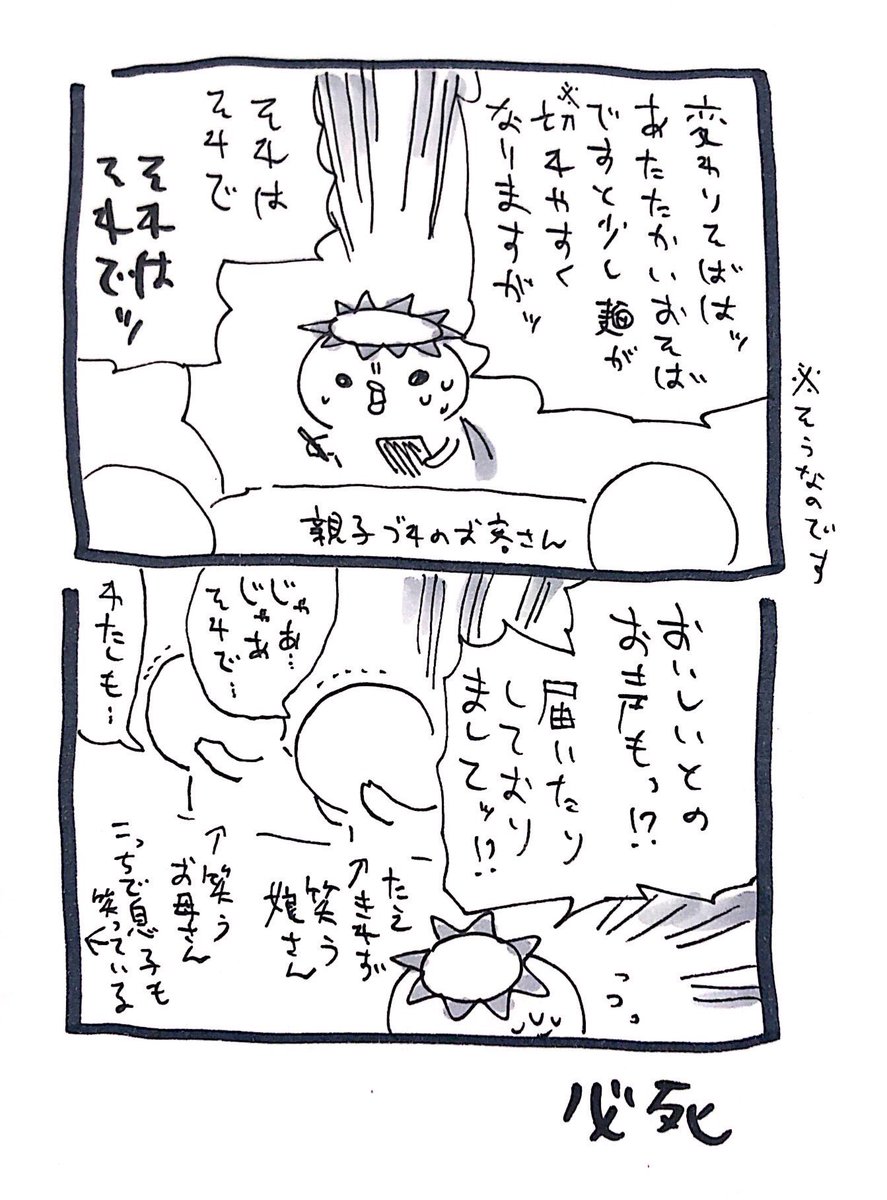 変わりそばはッ
あたたかいおそば
ですと少し麺が
※切れやすく
なりますがッ
それは
それで
それは
それでッ
※そうなのです
親子づれのお客さん
おいしいとの
お声もっ!?
届いたり
しており
ましてッ!?
じゃあ…
じゃあ
それで…
わたしも…
たえ
↑きれず
笑う
娘さん
↑笑う
お母さん
こっちで息子も
笑っている
←
っっ
必死